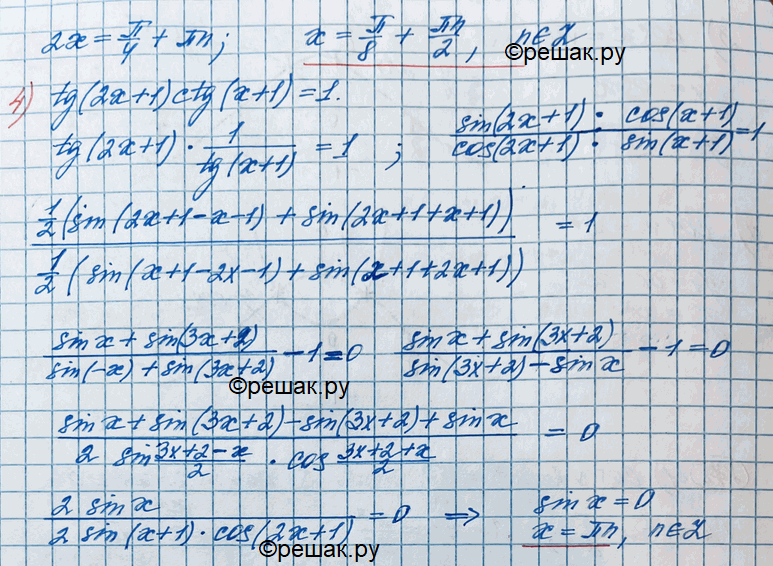 2x = π/4 + πn; x = π/8 + πn/2, n∈Z
©решак.ру
4) tg(2x+1)ctg(x+1)=1.
tg(2x+1) · 1/tg(x+1) = 1 ; sin(2x+1) · cos(x+1) / cos(2x+1) · sin(x+1) = 1
1/2(sin(2x+1-x-1) + sin(2x+1+x+1)) / 1/2(sin(x+1-2x-1) + sin(x+1+2x+1)) = 1
sin x + sin(3x+2) / sin(-x) + sin(3x+2) - 1 = 0 sin x + sin(3x+2) / sin(3x+2) - sin x - 1 = 0
©решак.ру
sin x + sin(3x+2) - sin(3x+2) + sin x / 2 sin 3x+2-x/2 · cos 3x+2+x/2 = 0
2 sin x / 2 sin(x+1) · cos(2x+1) = 0 ⇒ sin x = 0
x = πn, n∈Z
©решак.ру